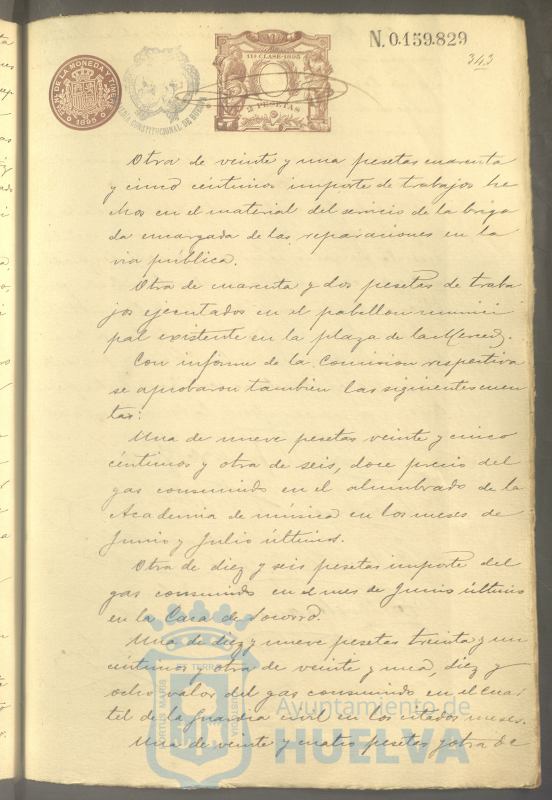 N. 0.159.829
343
11ª CLASE-1895
2 PESETAS
DE LA MONEDA Y TIMBRE
1895
CONSTITUCIONAL DE
Otra de veinte y una pesetas cuarenta
y cinco céntimos importe de trabajos he
chos en el material del servicio de la briga
da encargada de las reparaciones en la
via pública.
Otra de cuarenta y dos pesetas de traba
jos ejecutados en el pabellon munici
pal existente en la plaza de la Merced.
Con informe de la Comision respectiva
se aprobaron tambien las siguientes cuen
tas:
Una de nueve pesetas veinte y cinco
céntimos y otra de seis, doce precio del
gas consumido en el alumbrado de la
Academia de música en los meses de
Junio y Julio últimos.
Otra de diez y seis pesetas importe del
gas consumido en el mes de Junio último
en la Casa de Socorro.
Una de diez y nueve pesetas treinta y un
céntimos y otra de veinte y una, diez y
ocho valor del gas consumido en el Cuar
tel de la Guardia civil en los citados meses.
Una de veinte y cuatro pesetas y otra de
PORTUS MARIS
ET TERRAE
CUSTODIA
Ayuntamiento de
HUELVA